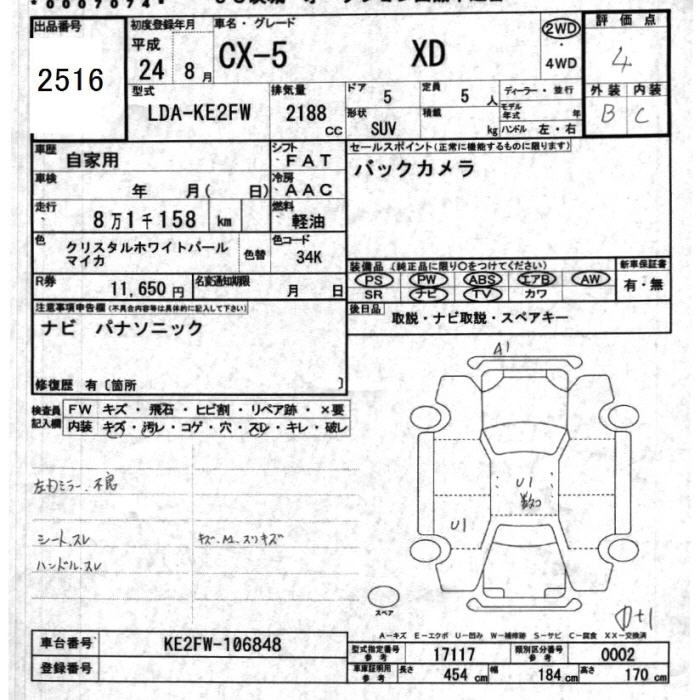 出品番号 初度登録年月 車名・グレード 2WD 評価点
2516 平成 24年 8月 CX-5 XD ・ 4WD 4
型式 LDA-KE2FW 排気量 2188 cc ドア 5 定員 5人 ディーラー・並行 外装 内装
形状 SUV 積載 kg モデル年式 年 ハンドル 左・右 B C
車歴 自家用 シフト FAT セールスポイント(正常に機能するものに限ります)
車検 年 月( 日) 冷房 AAC バックカメラ
走行 8万1千158 km 燃料 軽油
色 クリスタルホワイトパール
マイカ 色替 色コード 34K
装備品 (純正品に限り○をつけてください) 新車保証書
R券 11,650円 名変通知期限 月 日 PS PW ABS エアB AW 有・無
SR ナビ TV カワ
注意事項申告欄(不具合内容等は具体的に記入して下さい) 後日品 取説・ナビ取説・スペアキー
ナビ パナソニック
修復歴 有〔箇所 〕
A1
検査員 記入欄 FW キズ・飛石・ヒビ割・リペア跡・×要
内装 キズ・汚レ・コゲ・穴・スレ・キレ・破レ
U1
左ドミラー 不良
U1
シート スレ
ハンドル スレ
スペア
A-キズ E-エクボ U-凹み W-補修跡 S-サビ C-腐食 XX-交換済
車台番号 KE2FW-106848 型式指定番号 参考 17117 類別区分番号 参考 0002
登録番号 車庫証明用 参考 長さ 454 cm 幅 184 cm 高さ 170 cm